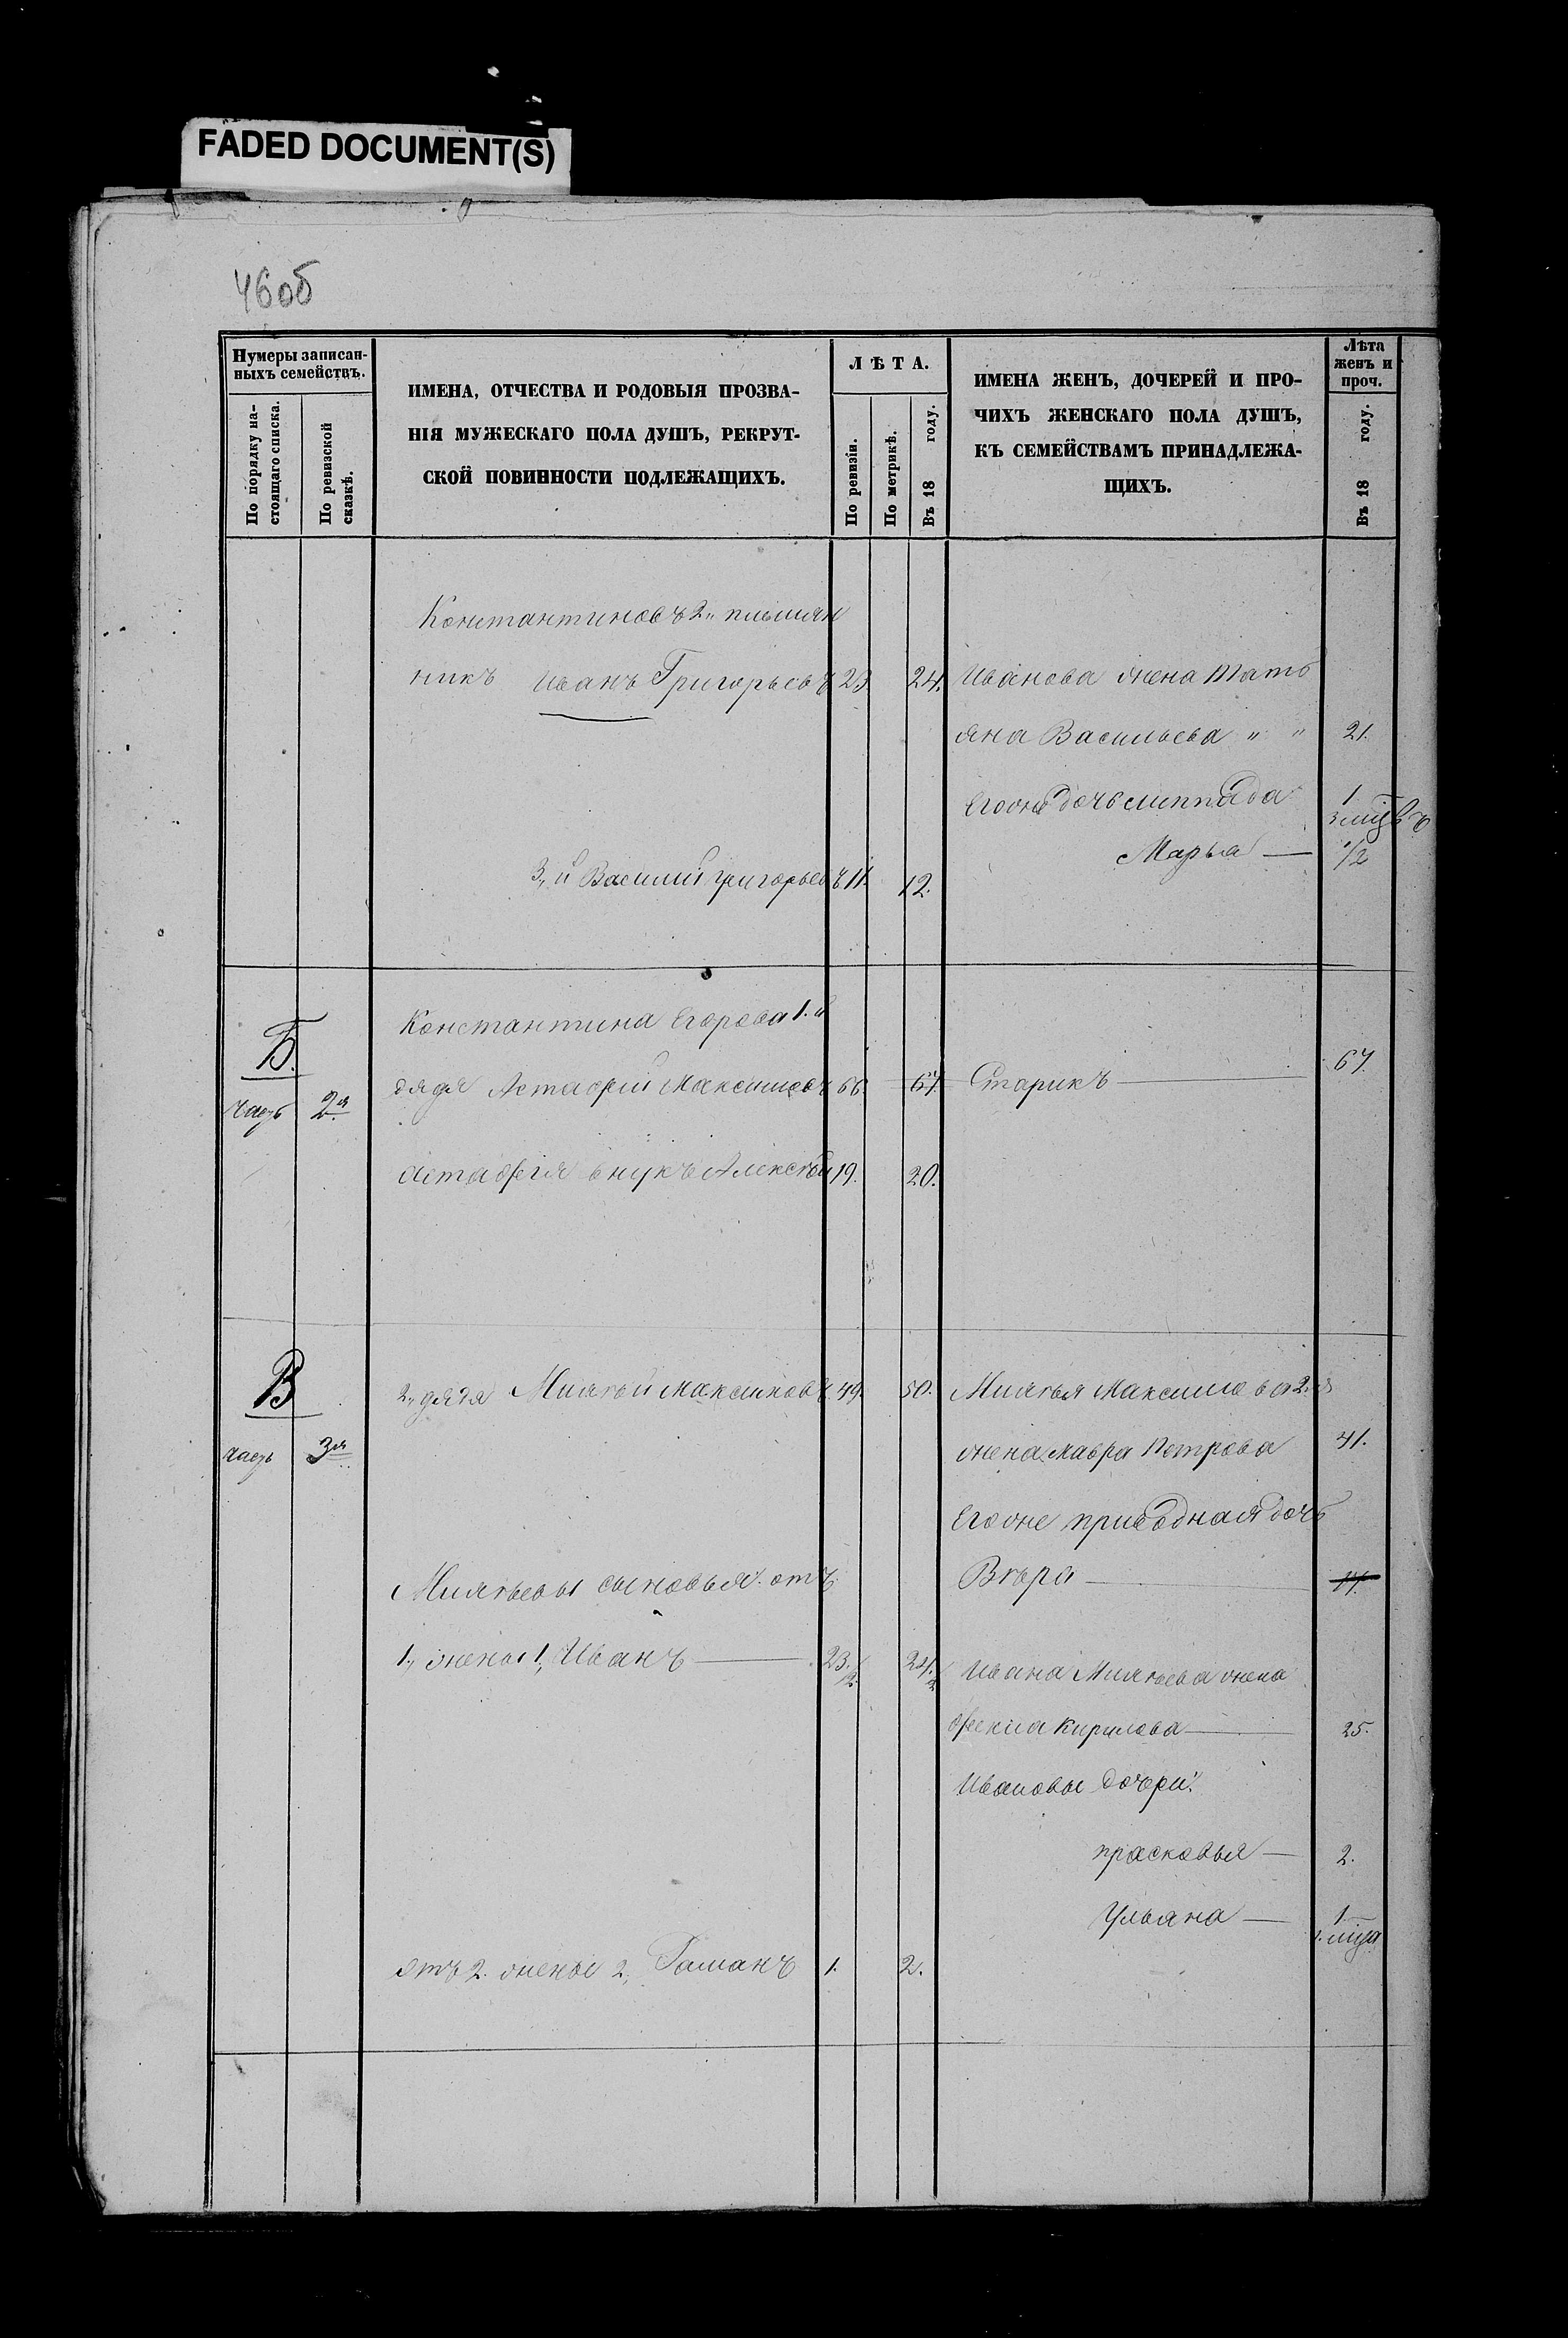 FADED DOCUMENT(S)
46об
Нумеры записан-
ныхъ семействъ.
По порядку на-
стоящаго списка.
По ревизской
сказкѣ.
ИМЕНА, ОТЧЕСТВА И РОДОВЫЯ ПРОЗВА-
НІЯ МУЖЕСКАГО ПОЛА ДУШЪ, РЕКРУТ-
СКОЙ ПОВИННОСТИ ПОДЛЕЖАЩИХЪ.
ЛѢТА.
По ревизіи.
По метрикѣ.
Въ 18 году.
ИМЕНА ЖЕНЪ, ДОЧЕРЕЙ И ПРО-
ЧИХЪ ЖЕНСКАГО ПОЛА ДУШЪ,
КЪ СЕМЕЙСТВАМЪ ПРИНАДЛЕЖА-
ЩИХЪ.
Лѣта
женъ и
проч.
Въ 18 году.
Константиновъ 2„ племян
никъ Иванъ Григорьевъ 23 24. Иванова жена Тать
яна Васильева „ „ 21.
Егоже дочь 1
Марья — 1/2
3„й Василий Григорьевъ 11. 12.
Б.
Константина Егорова 1.й
дядя Астафий Максимовъ 66. 67. Старикъ — 67
часть 2я
Астафия внукъ Алексѣй 19. 20.
В
2„ дядя Милѣй Максимовъ 49. 50. Милѣя Максимова 2.я
часть 3я
жена Мавра Петрова 41.
Егоже приводная дочь
Вѣра — 14.
Милѣевы сыновья отъ
1„ жены 1„ Иванъ — 23. 1/2 24. 1/2
Ивана Милѣева жена
Фекла Кирилова — 25.
Ивановы дочери:
Прасковья — 2.
Ульяна — 1
отъ 2. жены 2, Раманъ 1. 2.